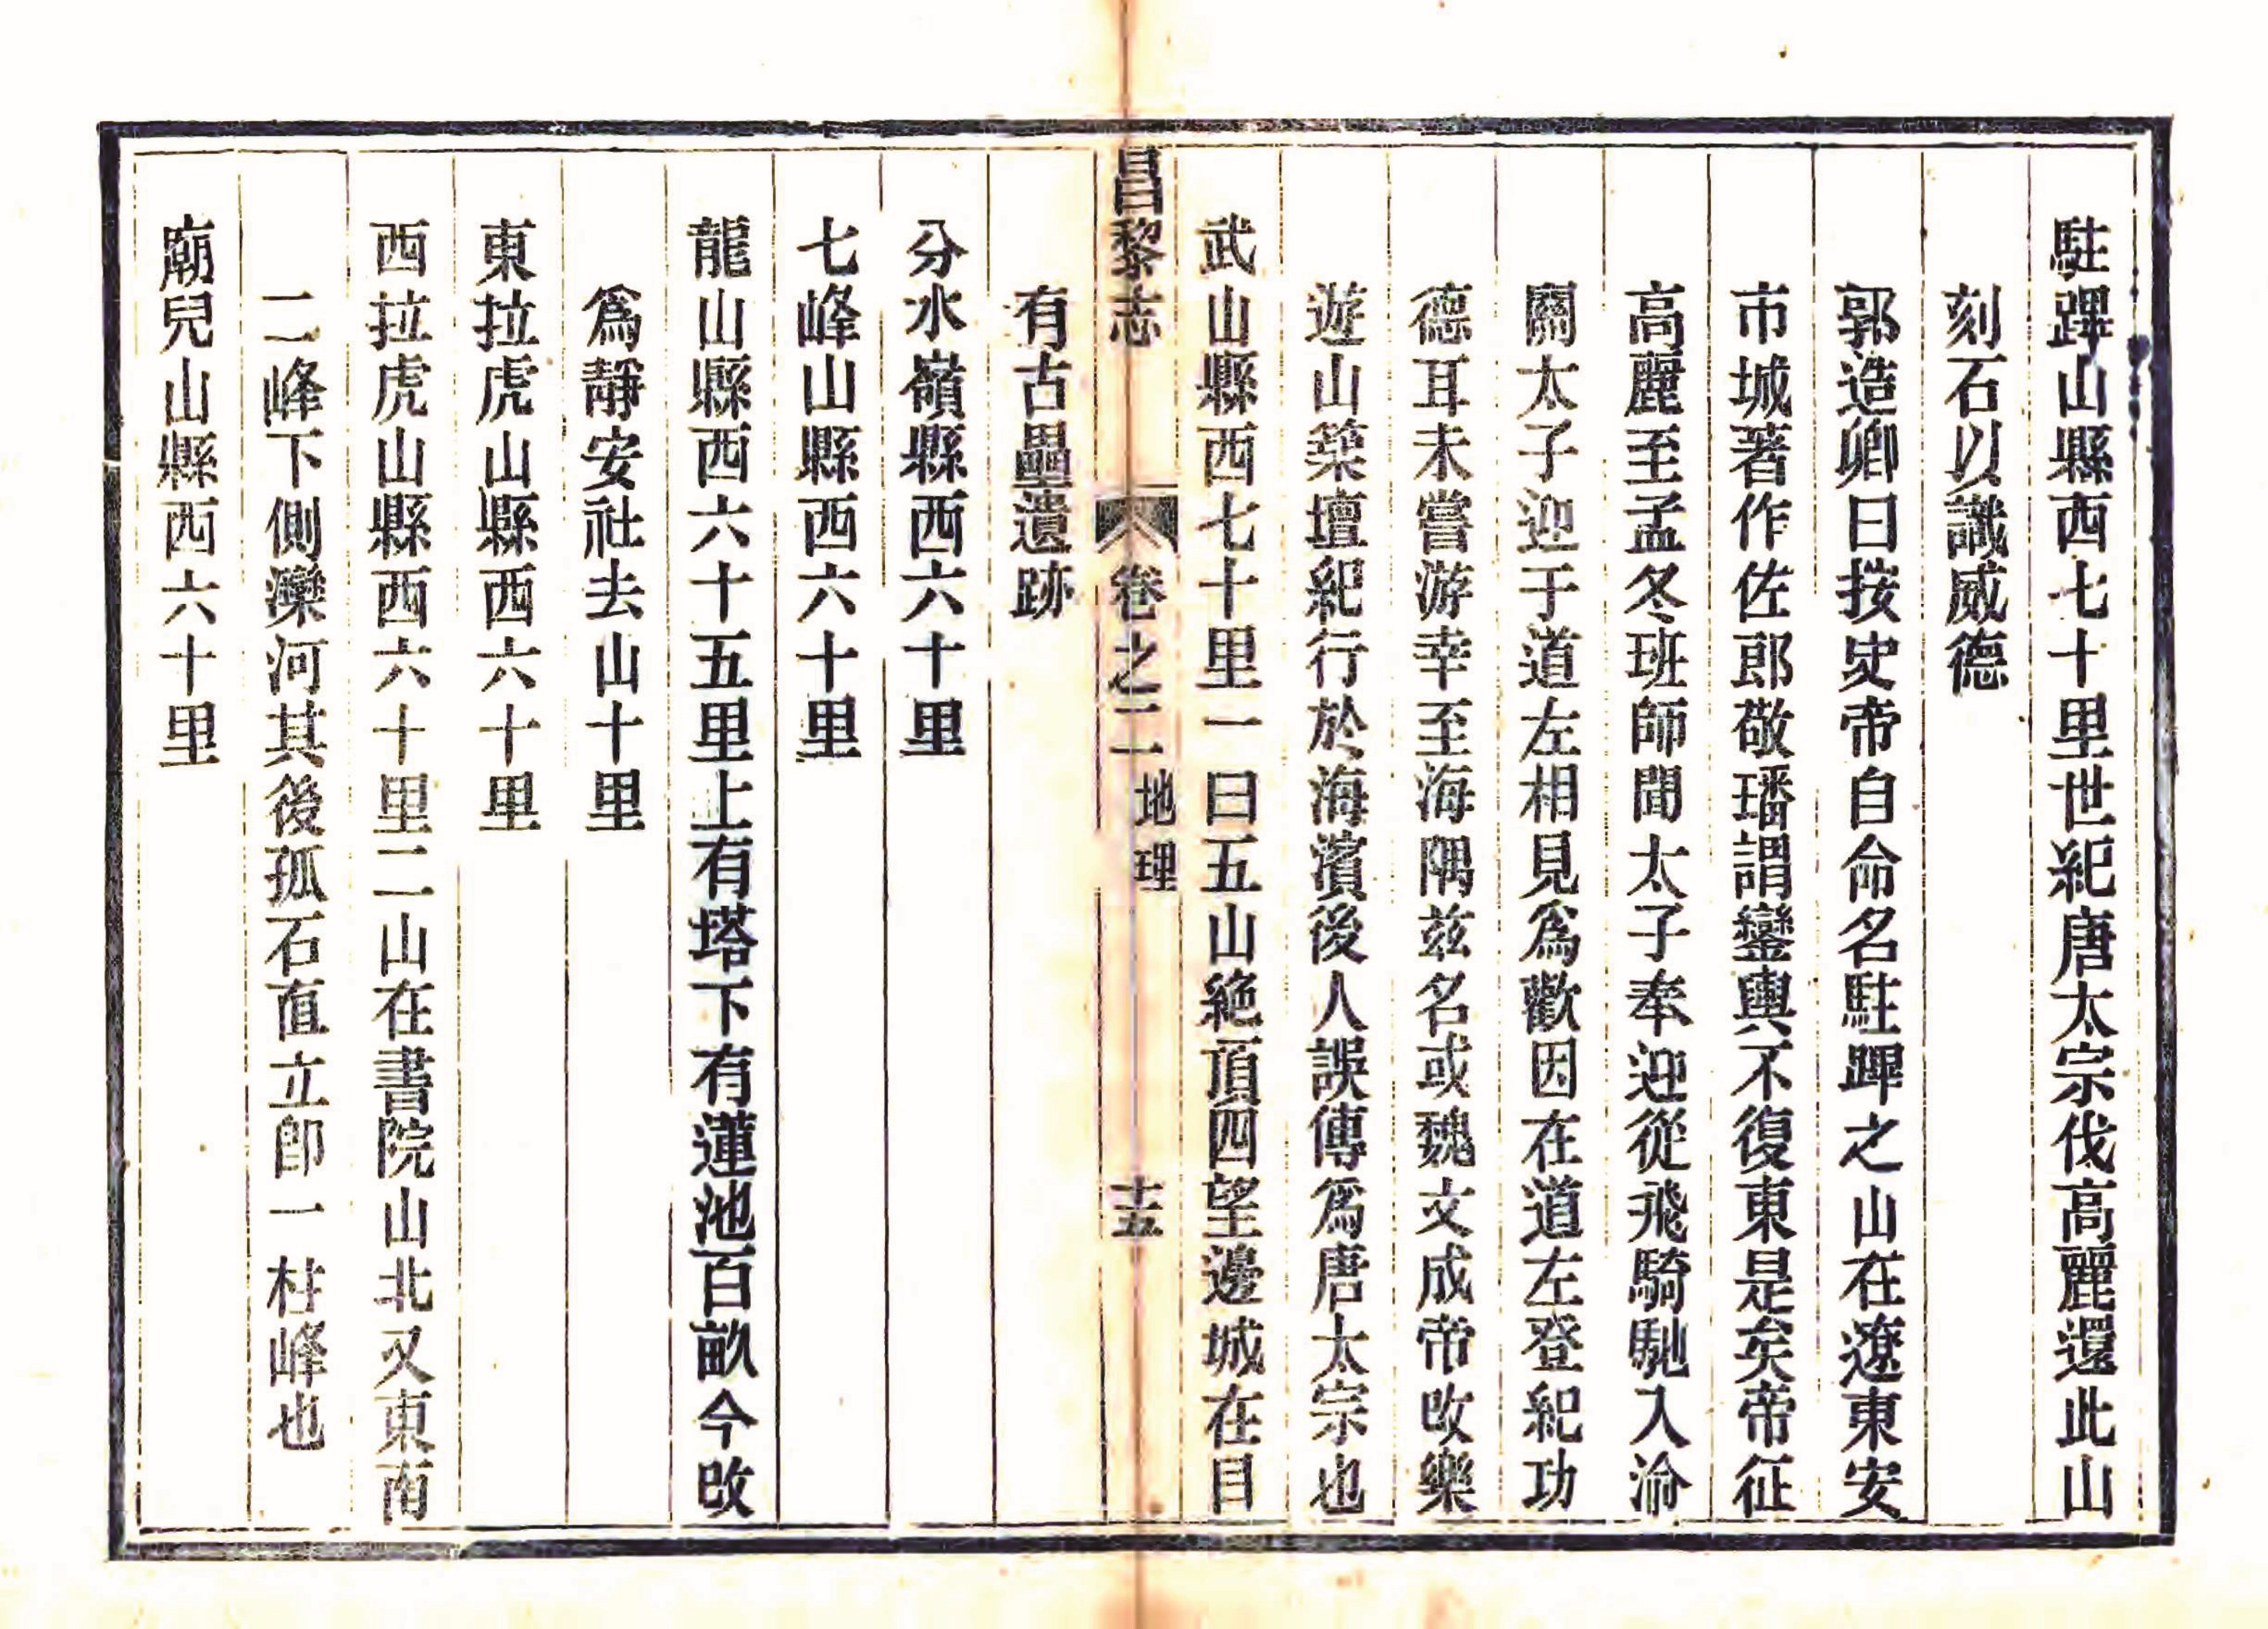 駐蹕山縣西七十里世紀唐太宗伐高麗還此山
刻石以識威德
郭造卿曰按史帝自命名駐蹕之山在遼東安
市城著作佐郎敬璠謂鑾輿不復東是矣帝征
高麗至孟冬班師聞太子奉迎從飛騎馳入渝
關太子迎于道左相見爲歡因在道左登紀功
德耳未嘗游幸至海隅茲名或魏文成帝改樂
遊山築壇紀行於海濱後人誤傳爲唐太宗也
武山縣西七十里一曰五山絶頂四望邊城在目
昌黎志
卷之二
地理
十五
有古壘遺跡
分水嶺縣西六十里
七峰山縣西六十里
龍山縣西六十五里上有塔下有蓮池百畝今改
爲靜安社去山十里
東拉虎山縣西六十里
西拉虎山縣西六十里二山在書院山北又東南
二峰下側灤河其後孤石直立卽一柱峰也
廟兒山縣西六十里